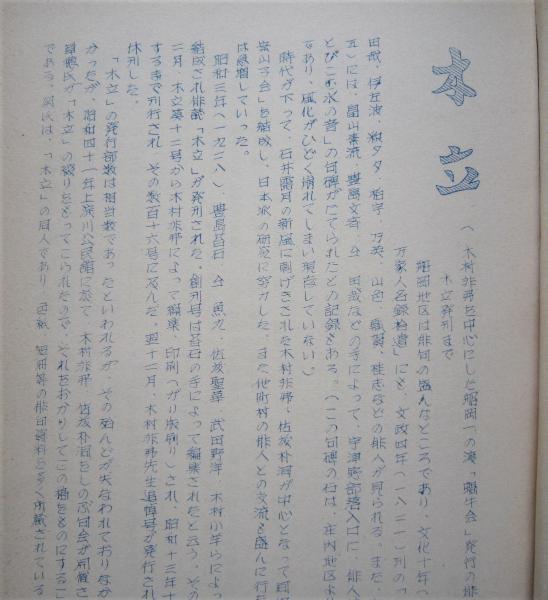 木立
(木村非弗を中心にした船岡一の湊「蝸牛会」発行の俳
木立発刊まで
船岡地区は俳句の盛んなところであり、文化十年(
万家人名録拾遺」にも、文政四年(一八二一)列の「
などの俳人が見られる。また、
五)には、畠山素流、豊島文斎、仝 田哉などの手によって、宇津野部落入口に、俳人
とびこむ水の音」の句碑がたてられたとの記録もある。(この句碑の石は、庄内地区よ
であり、風化がひどく崩れてしまい現存していない)
時代が下って、石井露月の新風に刺げきされた木村非弗、佐坂朴洞が中心となって
会」を結成し、日本派の研究に努力した。また他町村の俳人との交流も盛んに行
は急増していった。
昭和三年(一九二八) 豊島苔石 仝 魚刀、佐坂聖草、武田野洋 木村小羊らによっ
結成され俳誌「木立」が発刊された。創刊号は苔石の手によって編集されたと云う。その
二月、木立第十二号から木村非弗によって編集、印刷(ガリ版刷り)され、昭和十三年十
するまで刊行され その数百十六号に及んだ。翌十二月、木村非弗先生追悼号が発行され
休刊した。
「木立」の発行部数は相当数であったといわれるが、その殆んどが失なわれておりなか
かったが、昭和四十一年上淀川公民館に於て 木村非弗 佐坂朴洞をしのぶ句会が開催さ
氏が「木立」の綴りをとってこられたので、それをおかりしてこの稿をものにするこ
である。同氏は、「木立」の同人であり 色紙 短冊等の俳句資料も多く所蔵されている